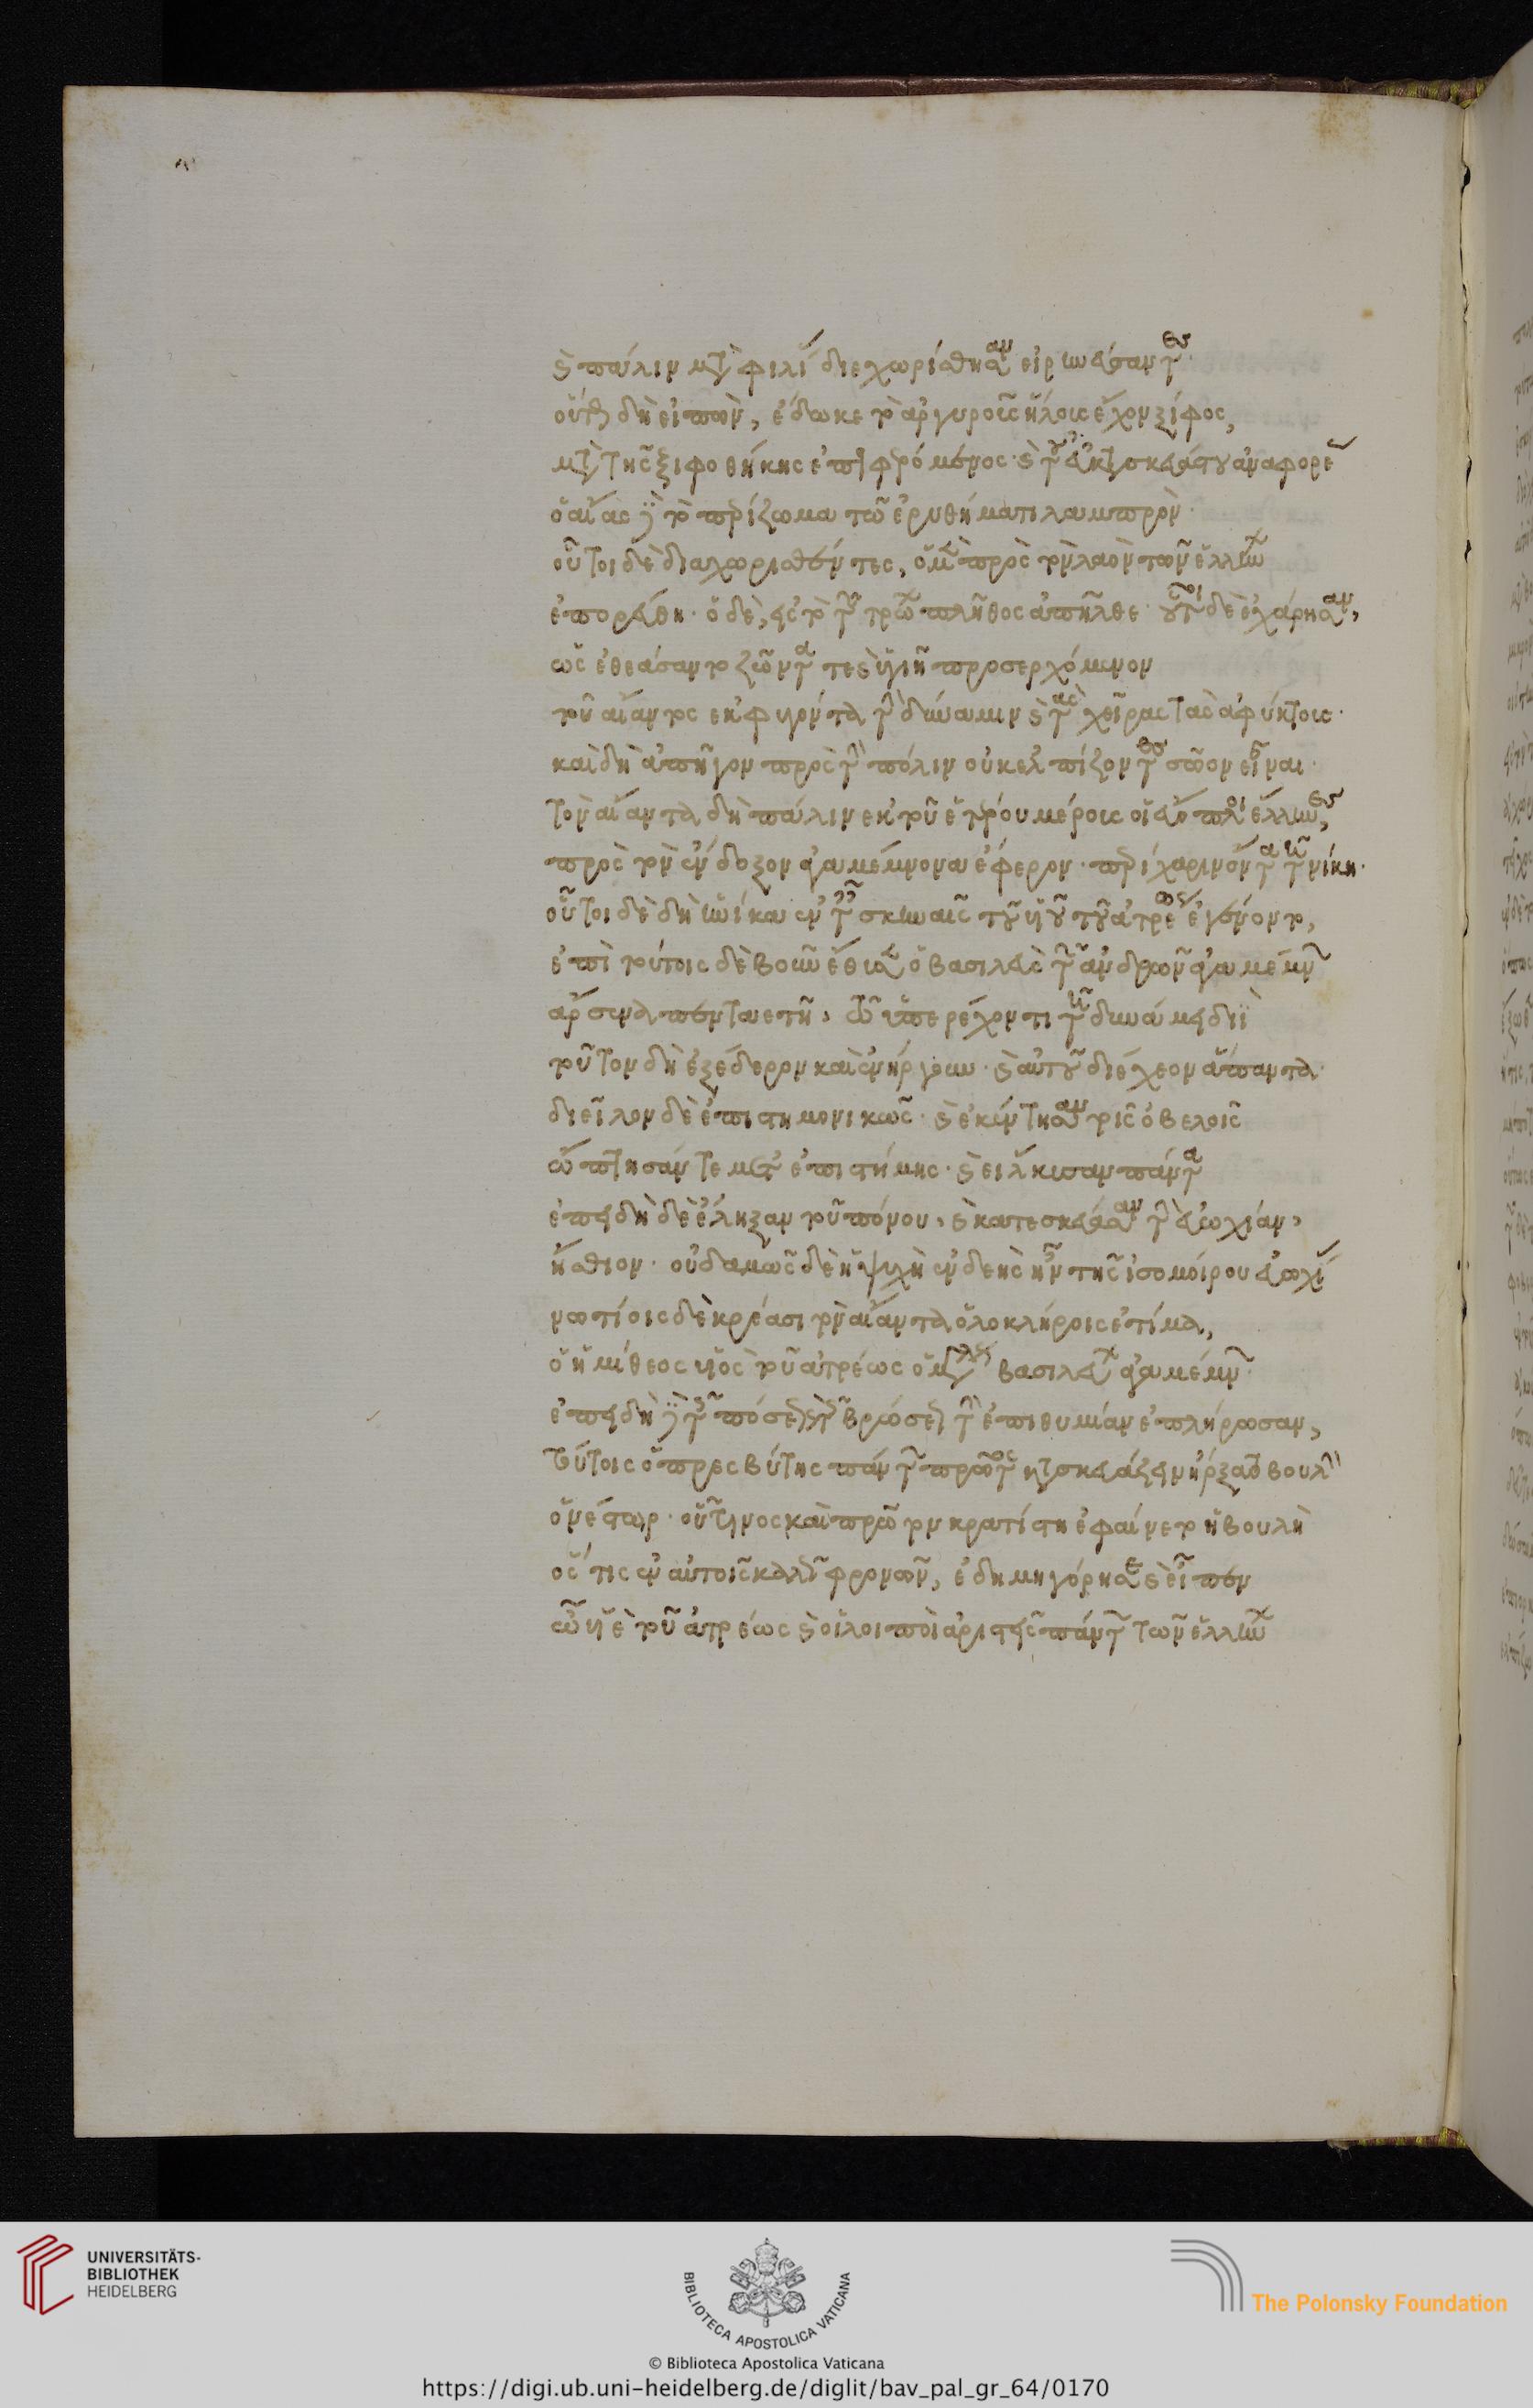 καὶ πάλιν μετὰ φιλίας διεχωρίσθησαν εἰρηνεύσαντες·
οὕτως δὴ εἰπὼν, ἔδωκε τὸ ἀργυροῖς ἥλοις ἔχον ξίφος,
μετὰ τῆς ξιφοθήκης ἐπιφερόμενος· καὶ τοῦ εὐκατασκευάστου ἀναφορέως
ὁ αἴας δὲ τὸ περίζωμα τῶ ἐρυθήματι λαμπρὸν·
οὗτοι δὲ διαχωρισθέντες, ὁ μὲν πρὸς τὸν λαὸν τῶν ἑλλήνων
ἐπορεύθη· ὁ δὲ, εἰς τὸ τῶν τρώων πλῆθος ἀπῆλθε· οὗτοι δὲ ἐχάρησαν,
ὡς ἐθεάσαντο ζῶντα τε καὶ ὑγιῆ προσερχόμενον
τοῦ αἴαντος ἐκφυγόντα τὴν δύναμιν καὶ τὰς χεῖρας τὰς ἀφύκτους·
καὶ δὴ ἀπῆγον πρὸς τὴν πόλιν οὐκ ἐλπίζοντες σῶον εἶναι·
τὸν αἴαντα δὴ πάλιν ἐκ τοῦ ἑτέρου μέρους οἱ εὔοπλοι ἕλληνες,
πρὸς τὸν ἔνδοξον ἀγαμέμνονα ἔφερον· περιχαρέντα τῇ νίκη·
οὗτοι δὲ δὴ ἡνίκα ἐν ταῖς σκηναῖς τοῦ υἱοῦ τοῦ ἀτρέως ἐγένοντο,
ἐπὶ τούτοις δὲ βοῦν ἔθυσεν ὁ βασιλεὺς τῶν ἀνδρῶν ἀγαμέμνων
ἄρσενα πενταετῆ, τῶ ὑπερέχοντι τῇ δυνάμει διὶ
τοῦτον δὴ ἐξέδερον καὶ ἐνήργουν· καὶ αὐτοῦ διέχεον ἅπαντα
διεῖλον δὲ ἐπιστημονικῶς· καὶ ἐκέντησαν τοῖς ὀβελοῖς
ὤπτησάν τε μετ' ἐπιστήμης· καὶ εἵλκυσαν πάντα
ἐπειδὴ δὲ ἔληξαν τοῦ πόνου, καὶ κατεσκεύασαν τὴν εὐωχίαν,
ἤσθιον· οὐδαμῶς δὲ ἡ ψυχὴ ἐνδεὴς ἦν τῆς ἰσομοίρου εὐωχίας
νωτίοις δὲ κρέασι τὸν αἴαντα ὁλοκλήροις ἐτίμα,
ὁ ἡμίθεος υἱὸς τοῦ ἀτρέως ὁ βασιλεύων ἀγαμέμνων·
ἐπειδὴ δὲ τῆς πόσεως καὶ τῆς βρώσεως τὴν ἐπιθυμίαν ἐπλήρωσαν,
τούτοις ὁ πρεσβύτης πάντων πρῶτος κατασκευάζειν ἤρξατο βουλὴν
ὁ νέστωρ· οὗτινος καὶ πρῶτον κρατίστη ἐφαίνετο ἡ βουλὴ
ὅστις ἐν αὐτοῖς καλὰ φρονῶν, ἐδημηγόρησε καὶ εἶπεν
ὦ υἱὲ τοῦ ἀτρέως καὶ οἱ λοιποὶ ἀριστεῖς πάντων τῶν ἑλλήνων
UNIVERSITÄTS-
BIBLIOTHEK
HEIDELBERG
BIBLIOTECA APOSTOLICA VATICANA
The Polonsky Foundation
© Biblioteca Apostolica Vaticana
https://digi.ub.uni-heidelberg.de/diglit/bav_pal_gr_64/0170